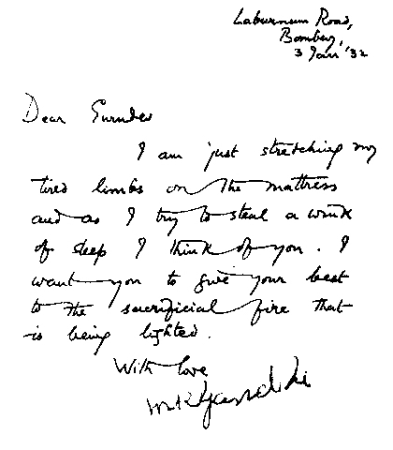 Laburnum Road,
Bombay,
3 Jan '32
Dear Gurudev
I am just stretching my
tired limbs on the mattress
and as I try to steal a wink
of sleep I think of you. I
want you to give your best
to the sacrificial fire that
is being lighted.
With love
MKGandhi